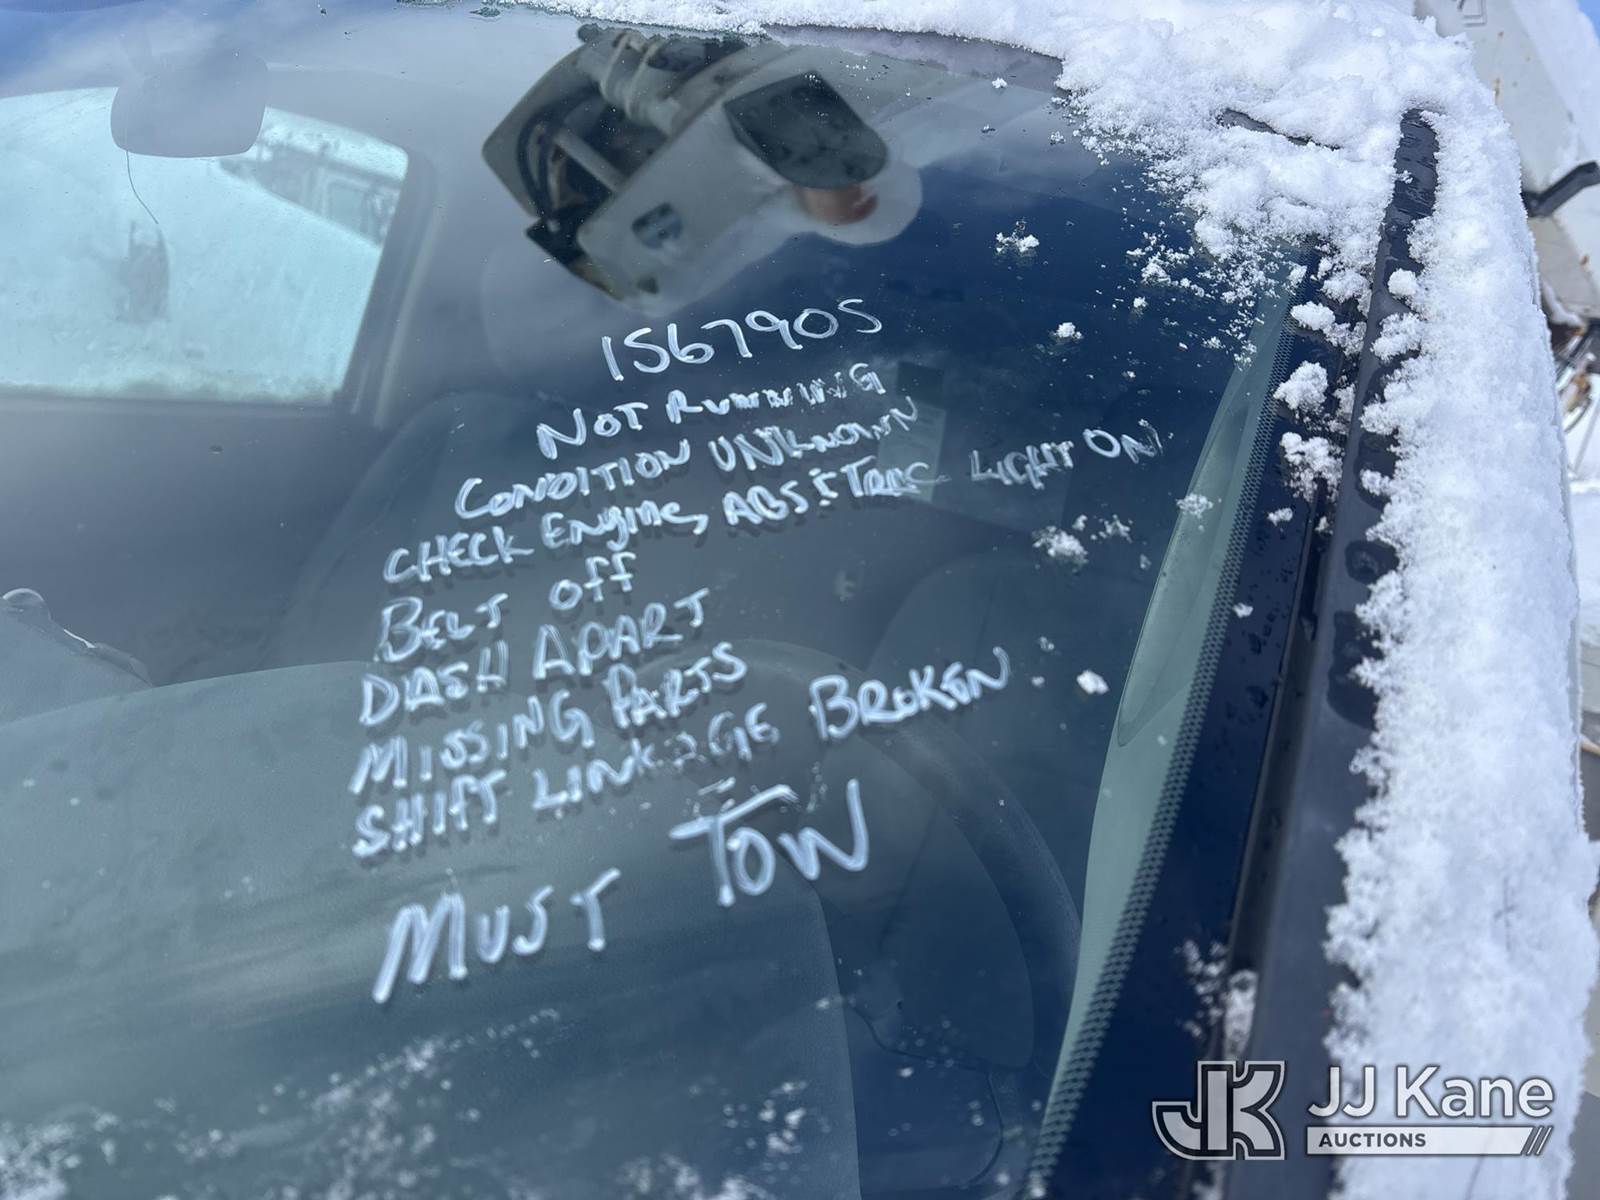 1567905
NOT RUNNING
CONDITION UNKNOWN
CHECK ENgINE, ABS & TRAC LIGHT ON
BELT Off
DASH APART
MISSING PARTS
SHIfT LINKAGE BROKEN
MUST TOW
JK JJ Kane
AUCTIONS